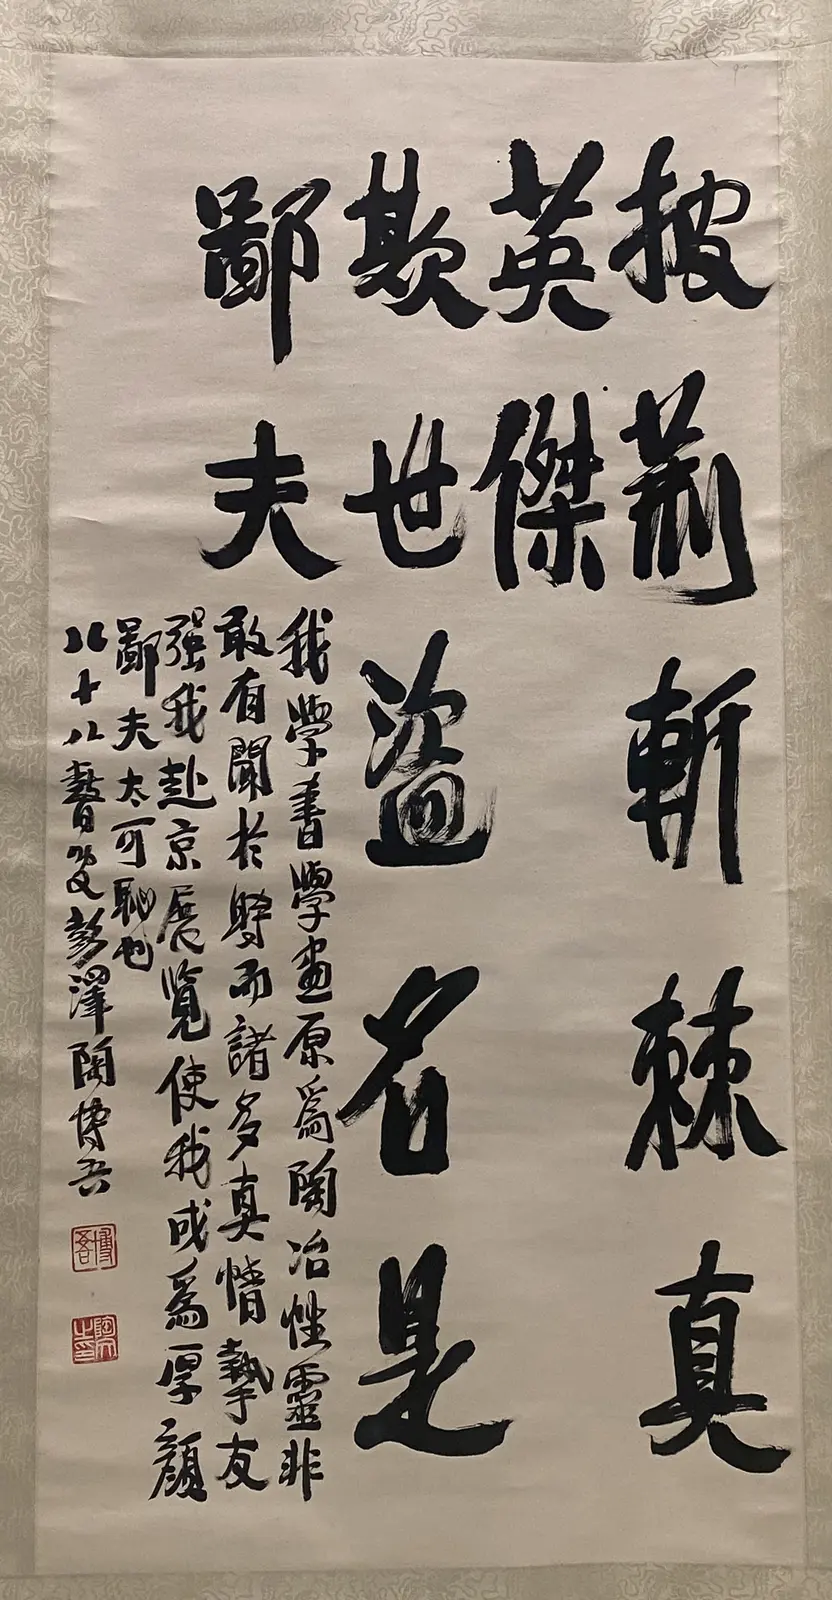 披荆斬棘真
英傑
欺世盜名是
鄙夫
我學書學畫原爲陶冶性靈非
敢有聞於時而諸多真情摯友
强我赴京展覽使我成爲厚顔
鄙夫太可恥也
八十八瞽叟彭澤陶博吾
博吾
陶之印